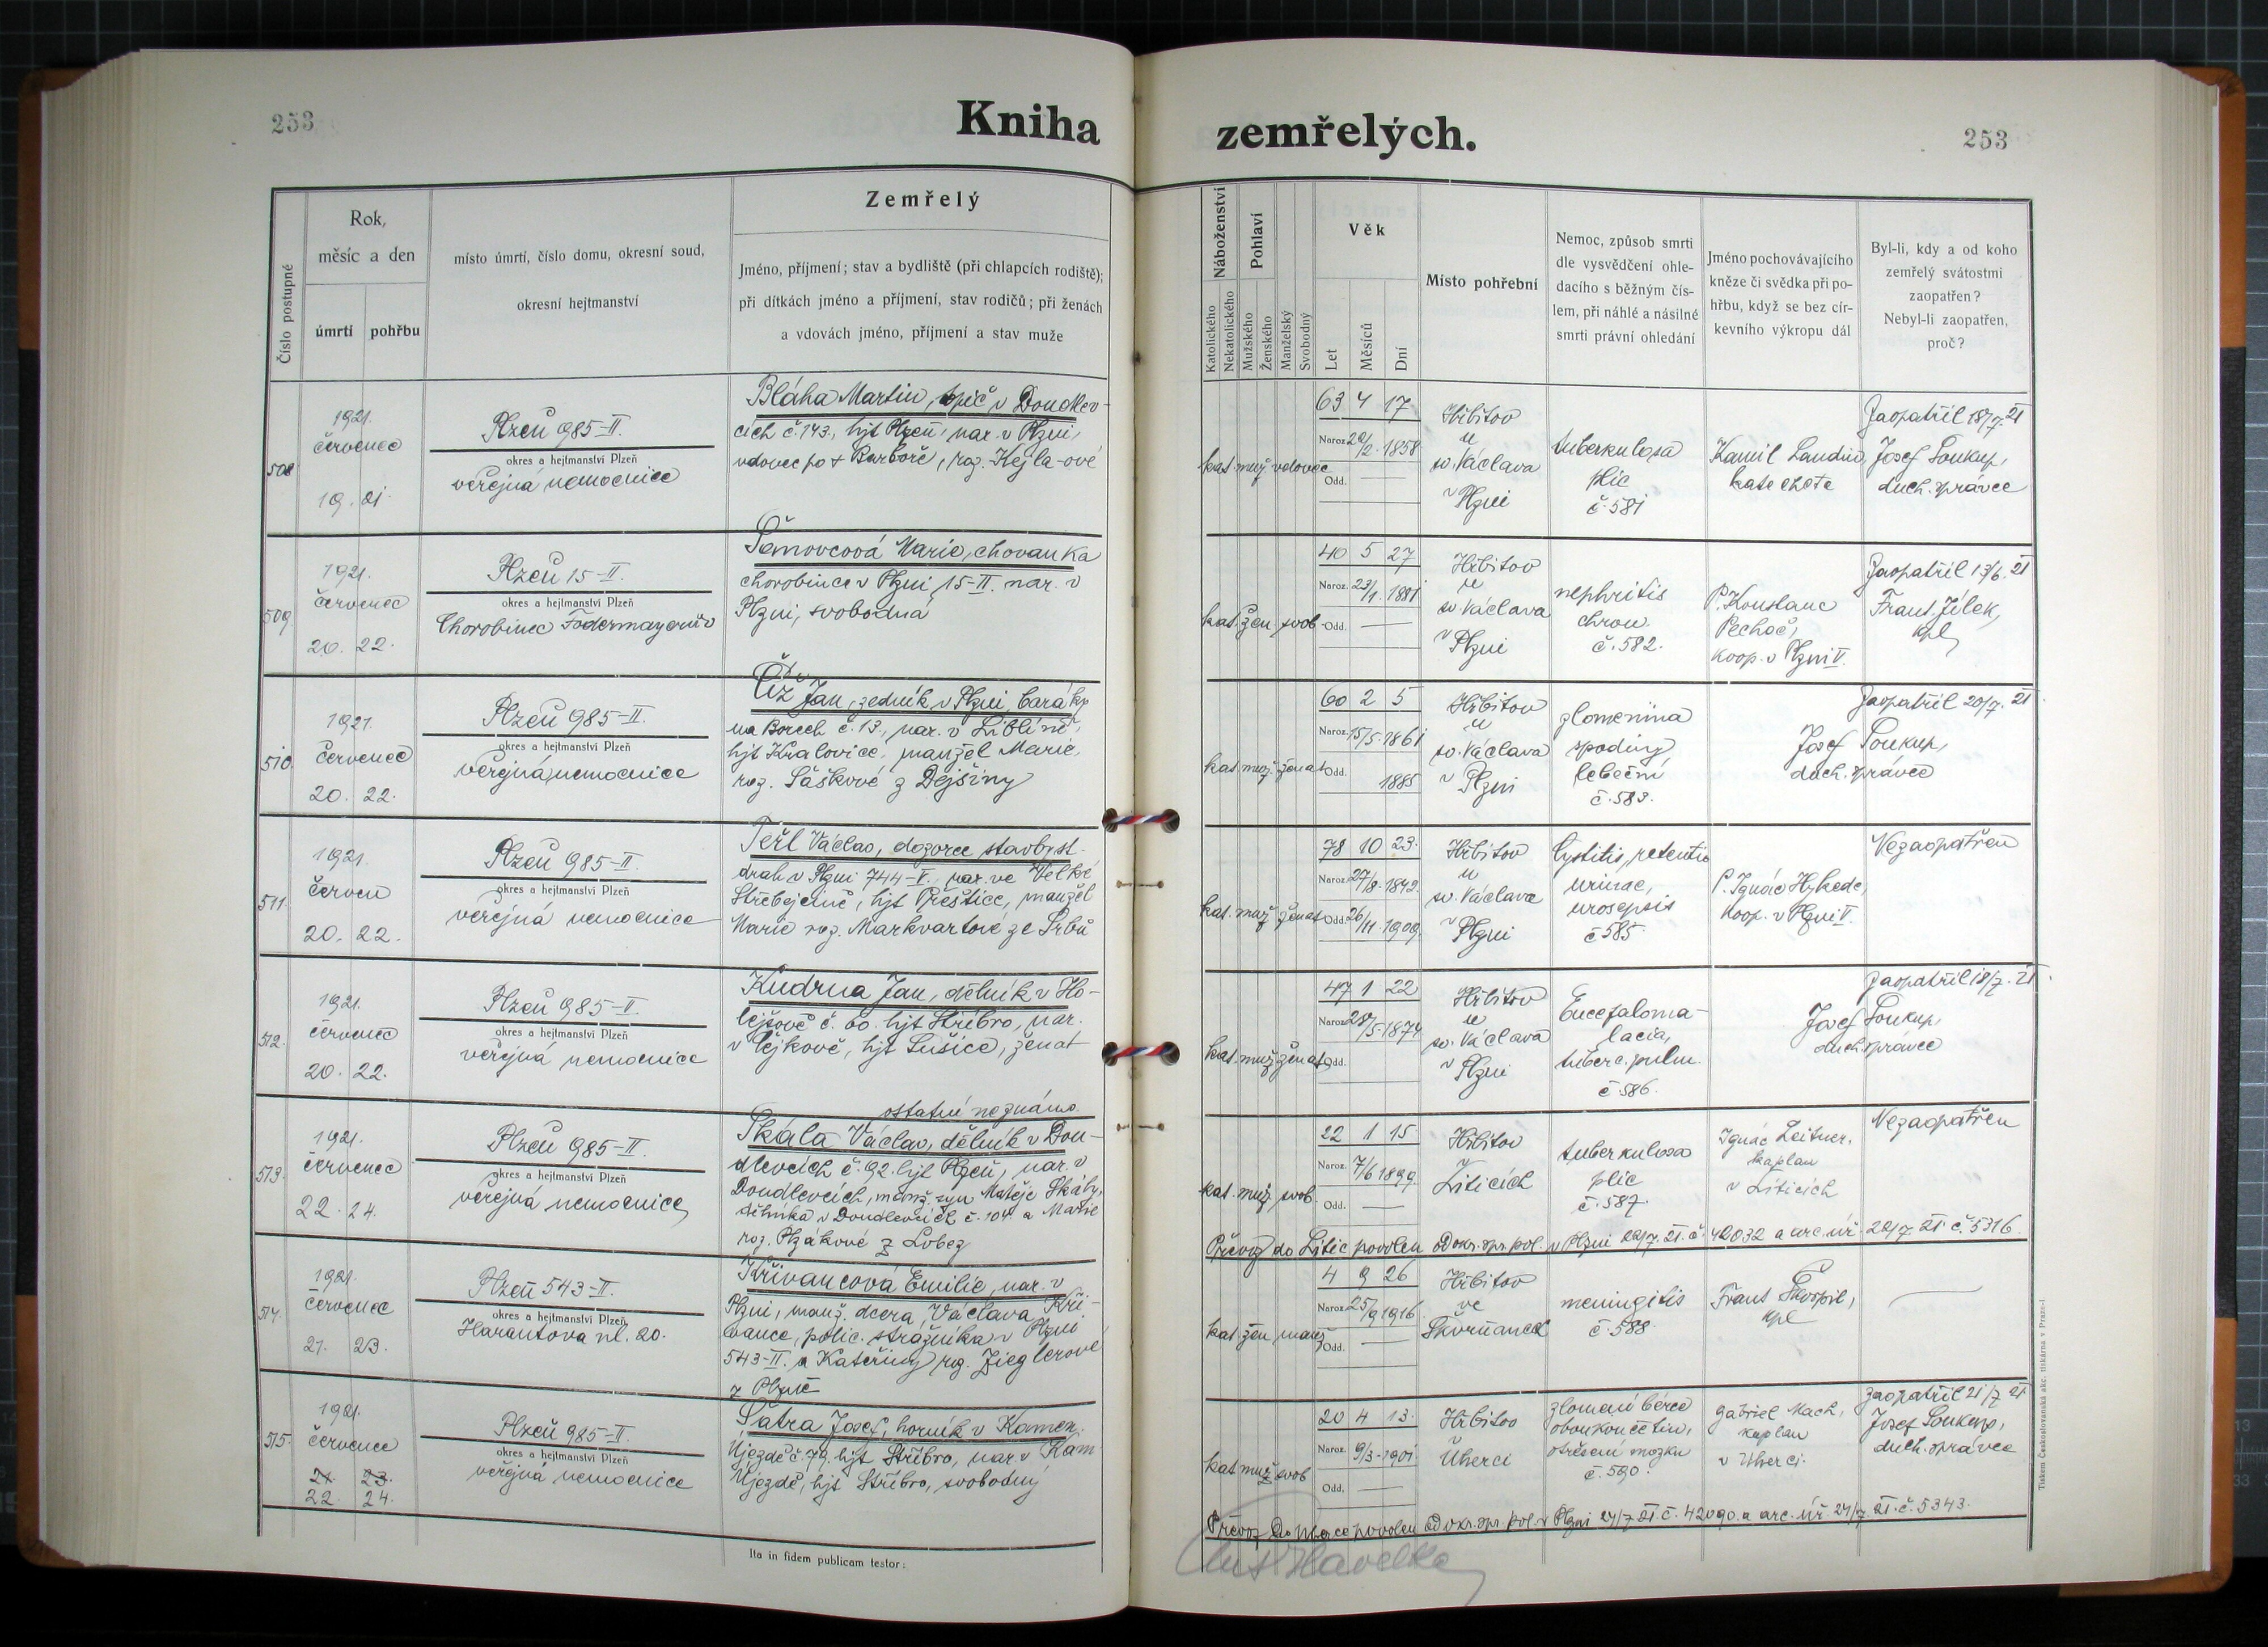 253
Kniha
zemřelých.
253
Číslo postupné
Rok,
měsíc a den
úmrtí
pohřbu
místo úmrtí, číslo domu, okresní soud,
okresní hejtmanství
Zemřelý
Jméno, příjmení; stav a bydliště (při chlapcích rodiště);
při dítkách jméno a příjmení, stav rodičů; při ženách
a vdovách jméno, příjmení a stav muže
Náboženství
Katolického
Nekatolického
Pohlaví
Mužského
Ženského
Manželský
Svobodný
Věk
Let
Měsíců
Dní
Místo pohřební
Nemoc, způsob smrti
dle vysvědčení ohle-
dacího s běžným čís-
lem, při náhlé a násilné
smrti právní ohledání
Jméno pochovávajícího
kněze či svědka při po-
hřbu, když se bez cír-
kevního výkropu dál
Byl-li, kdy a od koho
zemřelý svátostmi
zaopatřen?
Nebyl-li zaopatřen,
proč?
508
1921.
červenec
19. 21.
Plzeň 985-II.
okres a hejtmanství Plzeň
veřejná nemocnice
Bláha Martin, v Doudlev-
cích č. 143., hjt Plzeň, nar. v Plzni,
vdovec po + Barboře, roz. Kejla-ové
kat. muž vdovec
63 4 17
Naroz. 20/2. 1858
Odd.
Hřbitov
u
sv. Václava
v Plzni
tuberkulosa
plic
č. 581
Kamil Landin,
katecheta
Zaopatřil 18/7. 21
Josef Soukup,
duch. správce
509
1921.
červenec
20. 22.
Plzeň 15-II.
okres a hejtmanství Plzeň
Chorobinec Fodermayerův
Šemovcová Marie, chovanka
chorobince v Plzni, 15-II. nar. v
Plzni, svobodná
kat. žen svob
40 5 27
Naroz. 23/1. 1881
Odd.
Hřbitov
u
sv. Václava
v Plzni
nephritis
chron.
č. 582.
P. Konstanc
Pechoč,
koop. v Plzni V.
Zaopatřil 13/6. 21
Frant. Jílek,
kpl
510
1921.
červenec
20. 22.
Plzeň 985-II.
okres a hejtmanství Plzeň
veřejná nemocnice
Číž Jan, zedník v Plzni, baráky
na Borech č. 13., nar. v Liblíně,
hjt Kralovice, manžel Marie,
roz. Šáškové z Dejšiny
kat. muž ženat
60 2 5
Naroz. 15/5. 1861
Odd. 1885
Hřbitov
u
sv. Václava
v Plzni
zlomenina
spodiny
lebeční
č. 583.
Zaopatřil 20/7. 21.
Josef Soukup,
duch. správce
511
1921.
červen
20. 22.
Plzeň 985-II.
okres a hejtmanství Plzeň
veřejná nemocnice
Teřl Václav, dozorce stavby st.
drah v Plzni 744-V., nar. ve Velké
Střebejčině, hjt Přeštice, manžel
Marie roz. Markvartové ze Srbů
kat. muž ženat
78 10 23.
Naroz. 27/8. 1842.
Odd. 26/11. 1909.
Hřbitov
u
sv. Václava
v Plzni
Cystitis, retentio
urinae,
urosepsis
č 585.
P. Ignác Hykede,
koop. v Plzni V.
Nezaopatřen
512.
1921.
červenec
20. 22.
Plzeň 985-II
okres a hejtmanství Plzeň
veřejná nemocnice
Kudrna Jan, dělník v Ho-
lejšově č. 60. hjt Stříbro, nar.
v Čejkově, hjt Sušice, ženat
ostatní neznámo
kat. muž ženat
47 1 22
Naroz. 28/5. 1874
Odd.
Hřbitov
u
sv. Václava
v Plzni
Encefaloma-
lacia,
tuberc. pulm.
č. 586.
Zaopatřil 18/7. 21.
Josef Soukup,
duch. správce
513.
1921.
červenec
22. 24.
Plzeň 985-II.
okres a hejtmanství Plzeň
veřejná nemocnice
Skála Václav, dělník v Dou-
dlevcích č. 92. hjt Plzeň, nar. v
Doudlevcích, manž. syn Matěje Skály,
dělníka v Doudlevcích č. 104. a Marie
roz. Plzákové z Lobez
kat. muž svob.
22 1 15
Naroz. 7/6 1899.
Odd.
Hřbitov
v
Liticích
tuberkulosa
plic
č. 587.
Ignác Leitner,
kaplan
v Liticích
Nezaopatřen
Převoz do Litic povolen od okr. spr. pol. v Plzni 22/7. 21. č. 42032 a arc. úř. 22/7. 21. č. 5316.
514.
1921.
červenec
21. 23.
Plzeň 543-II.
okres a hejtmanství Plzeň
Harantova ul. 20.
Křivancová Emilie, nar. v
Plzni, manž. dcera, Václava Kři-
vance, polic. strážníka v Plzni
543-II. a Kateřiny roz. Zieglerové
z Plzně
kat. žen manž
4 9 26
Naroz. 25/9 1916
Odd.
Hřbitov
ve
Skvrňanech
meningitis
č. 588.
Frant Škorpil,
kpl
515.
1921.
červenec
21. 23.
22. 24.
Plzeň 985-II.
okres a hejtmanství Plzeň
veřejná nemocnice
Šatra Josef, horník v Kamen.
Újezdě č. 79. hjt Stříbro, nar. v Kam
Újezdě, hjt Stříbro, svobodný
kat. muž svob
20 4 13.
Naroz. 9/3. 1901.
Odd.
Hřbitov
v
Úherci
zlomení bérce
obou končetin,
otřesení mozku
č. 590.
Gabriel Mach,
kaplan
v Úherci.
Zaopatřil 21/7 21
Josef Soukup,
duch. správce
Převoz do povolen od okr. spr. pol. v Plzni 24/7 21 č. 42090. a arc. úř. 24/7. 21. č. 5343.
Ita in fidem publicam testor:
Havelka
Tiskem Českoslovanská akc. tiskárna v Praze-I.